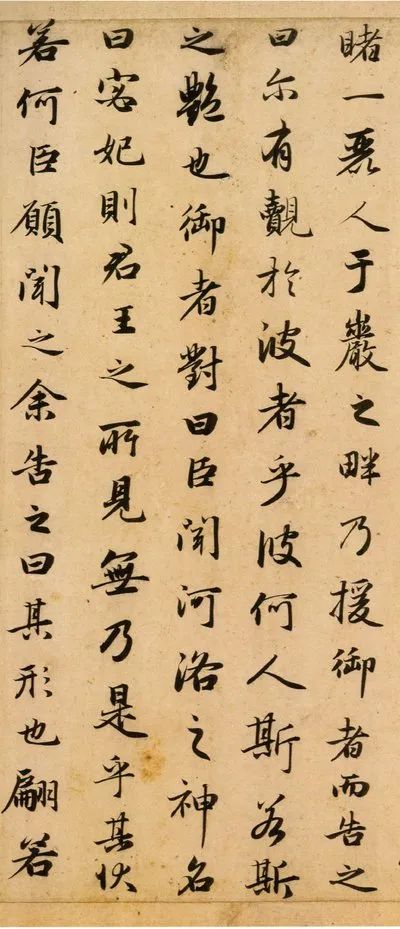 睹一麗人于巖之畔乃援御者而告之
曰尔有覿於彼者乎彼何人斯若斯
之艷也御者對曰臣聞河洛之神名
曰宓妃則君王之所見無乃是乎其狀
若何臣願聞之余告之曰其形也翩若